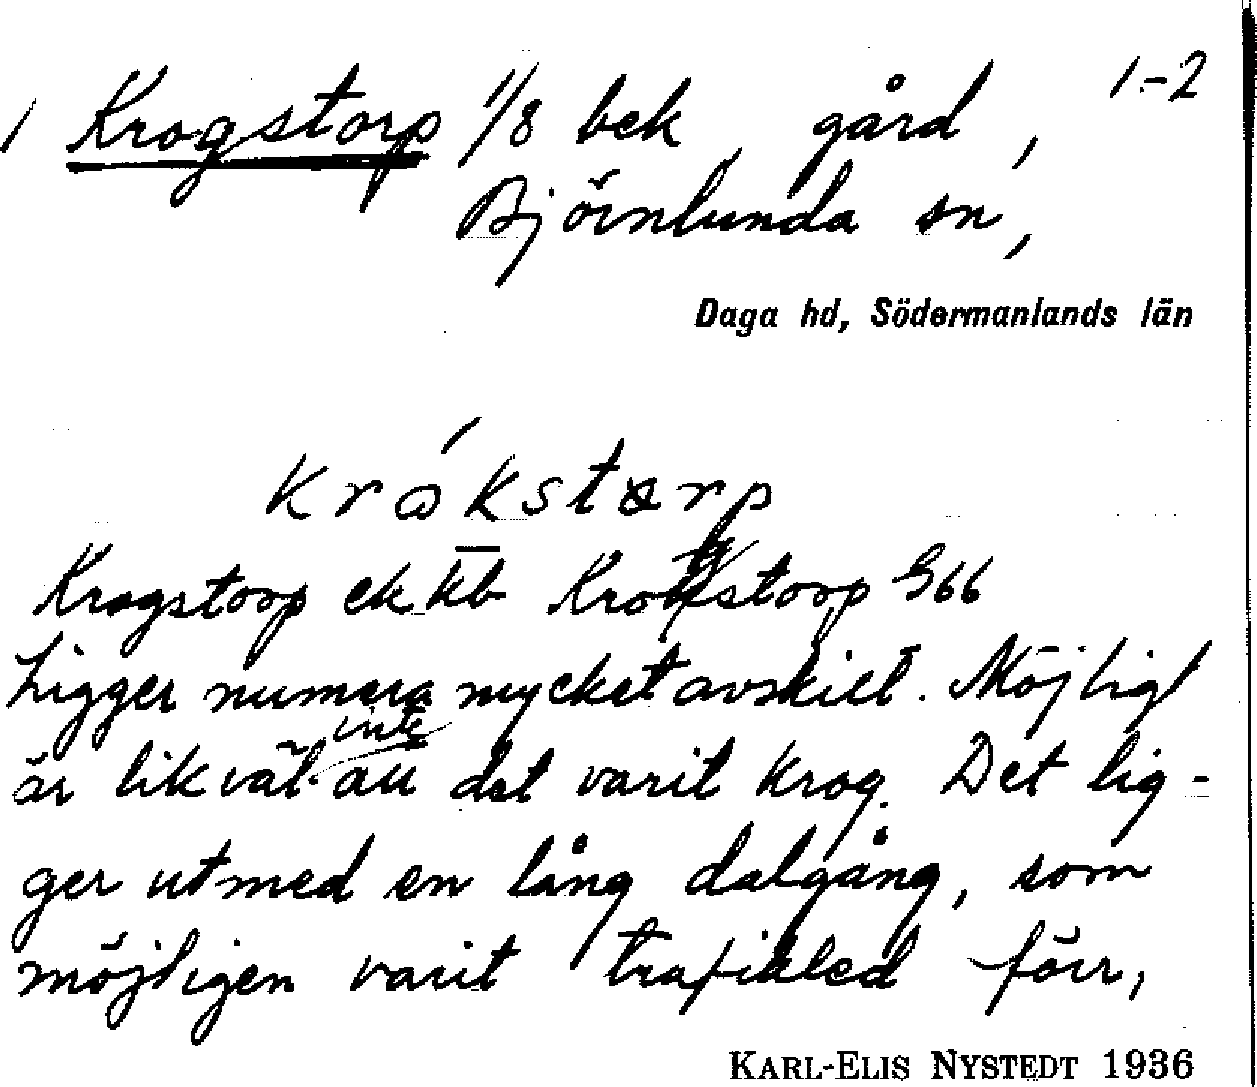 1 Krogstorp 1/8 bek gård, 1-2
Björnlunda sn,
Daga hd, Södermanlands län
krákstorp
Krogstorp ek kb Krogstorp G66
Ligger numera mycket avskilt. Möjligt
är likväl inte att det varit krog. Det lig-
ger utmed en lång dalgång, som
möjligen varit trafikled förr,
KARL-ELIS NYSTEDT 1936